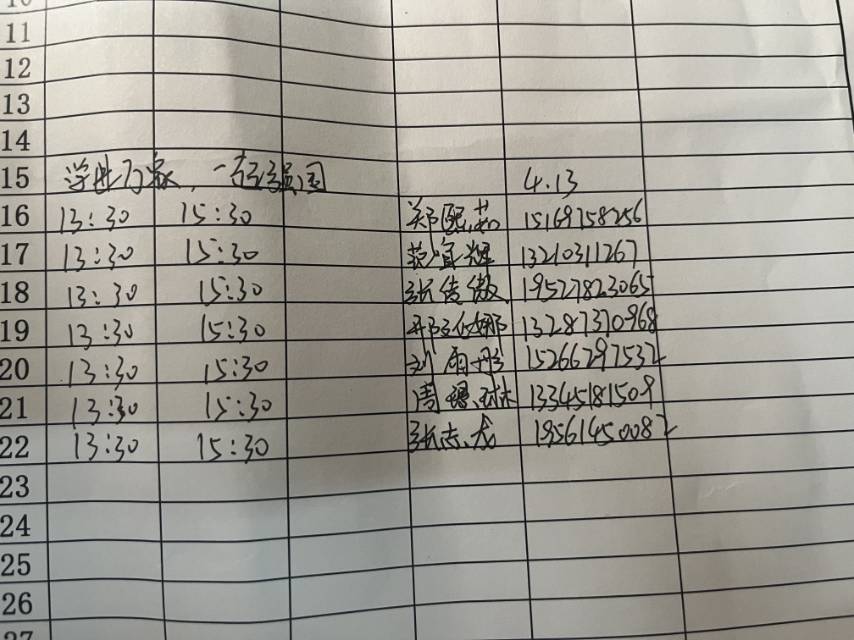 11
12
13
14
15 学进万家，一起强国 4.13
16 13:30 15:30 郑熙茹 15169758256
17 13:30 15:30 范宜煜 13210311267
18 13:30 15:30 张传傲 19527823065
19 13:30 15:30 邢弘娜 13287370968
20 13:30 15:30 刘雨彤 15266297532
21 13:30 15:30 周 琳 13345181509
22 13:30 15:30 张志龙 19561450082
23
24
25
26
27